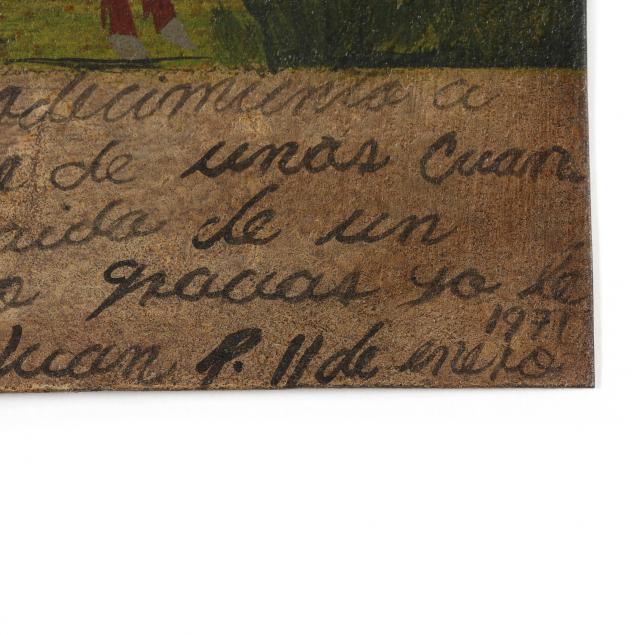 adecimiento a
de unas Cuan
aida de un
gracias yo le
1971
Juan P. 11 de enero